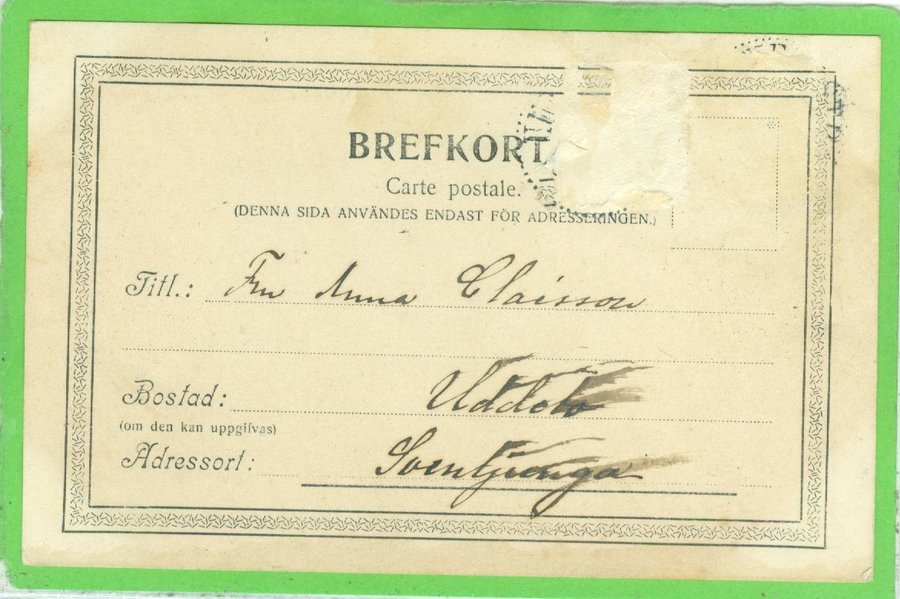 BREFKORT
Carte postale.
(DENNA SIDA ANVÄNDES ENDAST FÖR ADRESSERINGEN.)
Titl.: Fru Anna Claisson
Bostad: Uddebo
(om den kan uppgifvas)
Adressort: Svenljunga